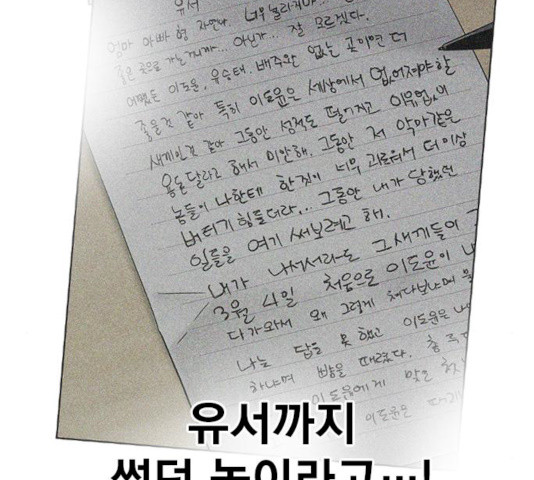 유서
엄마 아빠 형 자연아 너무 놀라지마..
좋은 곳으로 가는거니까... 아닌가.. 잘 모르겠다.
어쨌든 이도윤, 우승태, 배주완 없는 곳이면 더
좋을것 같아 특히 이도윤은 세상에서 없어져야할
새끼인것 같아 그동안 성적도 떨어지고 이유없이
용돈달라고 해서 미안해. 그동안 저 악마같은
놈들이 나한테 한짓이 너무 괴로워서 더이상
버티기 힘들더라... 그동안 내가 당했던
일들을 여기 써보려고 해.
내가 나서서라도 그새끼들이
3월 4일 처음으로 이도윤이
다가와서 왜 그렇게 쳐다보냐며
나는 답을 못 했고 이도윤은
하냐며 뺨을 때렸다.
이도윤에게 맞은
이도윤은
유서까지
썼던 놈이라고…!